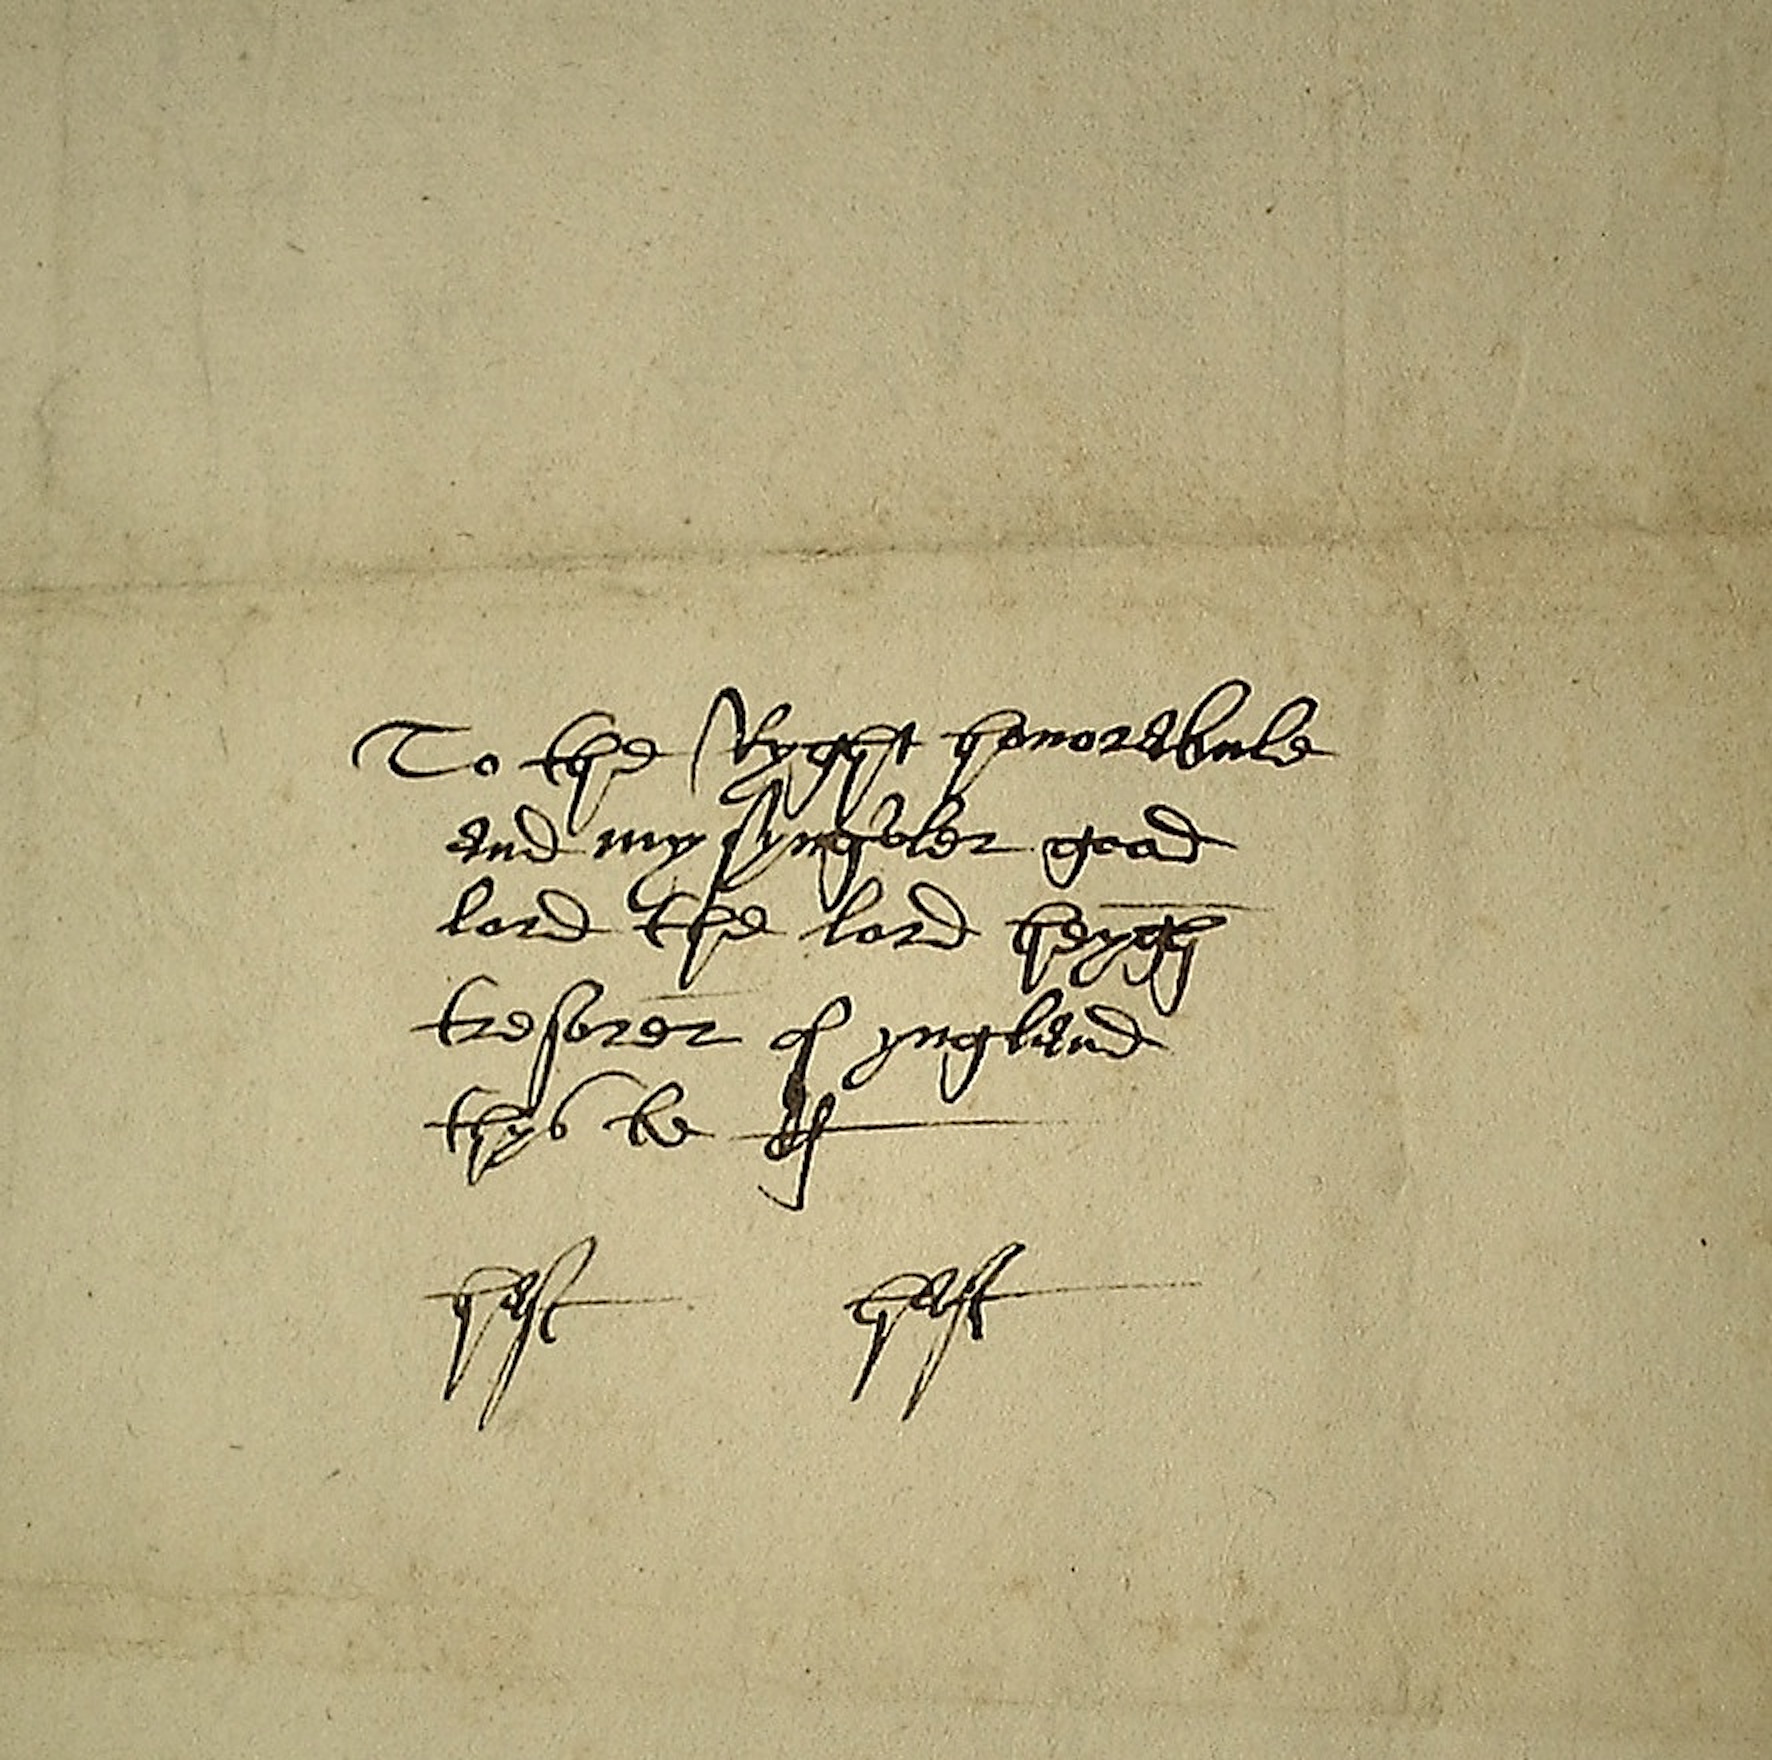 To the Ryght honorabule
and my syngoler good
lord the lord heygh
tresorer of yngland
thys be dd
hast hast